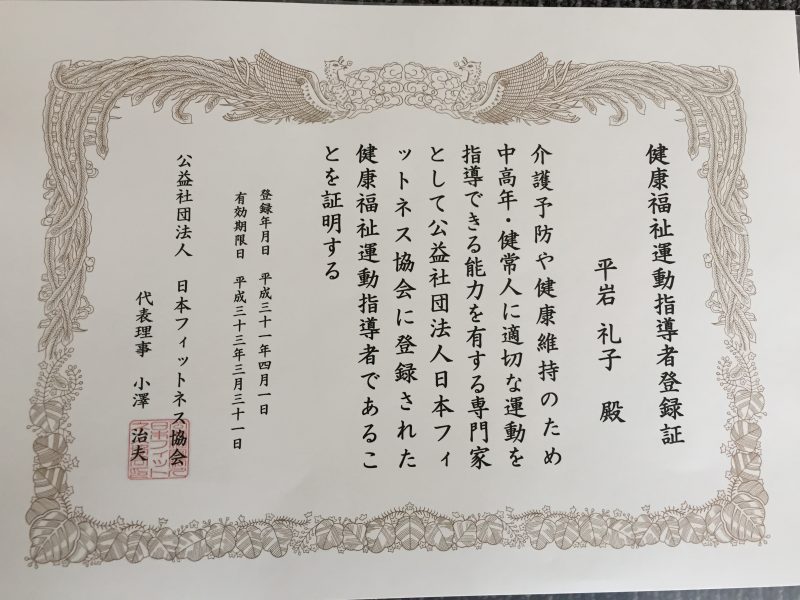 健康福祉運動指導者登録証
平岩 礼子 殿
介護予防や健康維持のため
中高年・健常人に適切な運動を
指導できる能力を有する専門家
として公益社団法人日本フィ
ットネス協会に登録された
健康福祉運動指導者であるこ
とを証明する
登録年月日 平成三十一年四月一日
有効期限日 平成三十三年三月三十一日
公益社団法人 日本フィットネス協会
代表理事 小澤 治夫